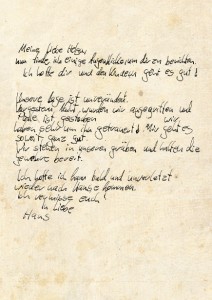 Meine liebe Helen
nun finde ich einige Augenblicke um dir zu berichten.
Ich hoffe dir und den Kindern geht es gut!
Unsere Lage ist unverändert.
Vorgestern Nacht wurden wir angegriffen und
ist gestorben wir
haben sehr um ihn getrauert! Mir geht es
soweit ganz gut.
Wir stehen in unseren gräben und halten die
gewehre bereit.
Ich hoffe ich kann bald und unverletzt
wieder nach Hause kommen.
Ich vermisse euch!
In Liebe
Hans